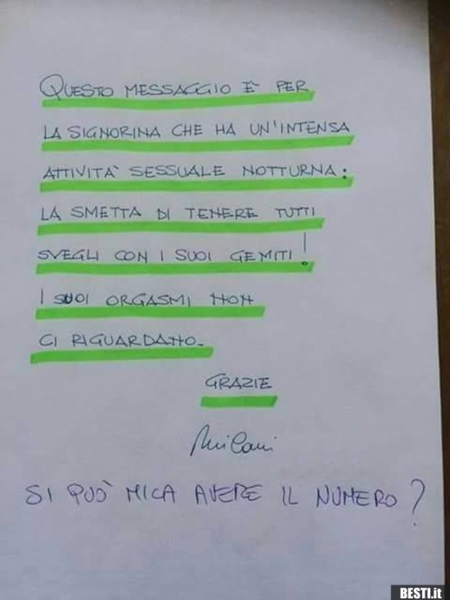 QUESTO MESSAGGIO È PER
LA SIGNORINA CHE HA UN'INTENSA
ATTIVITÀ SESSUALE NOTTURNA:
LA SMETTA DI TENERE TUTTI
SVEGLI CON I SUOI GEMITI!
I SUOI ORGASMI NON
CI RIGUARDANO.
GRAZIE
Milani
SI PUÒ MICA AVERE IL NUMERO?
BESTI.it